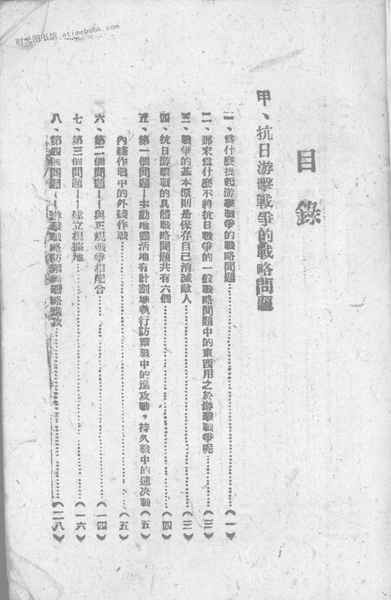 目錄
甲、抗日游擊戰爭的戰略問題
一、爲什麽提起游擊戰爭的戰略問題……(一)
二、爲什麽不將抗日戰爭的一般戰略問題中的東西用之於游擊戰爭呢……(三)
三、戰爭的基本原則是保存自己消滅敵人……(三)
四、抗日游擊戰的具體戰略問題共有六個……(四)
五、第一個問題——主動地靈活地有計劃地執行防禦戰中的進攻戰，持久戰中的速决戰
內綫作戰中的外綫作戰……(五)
六、第二個問題——與正規戰爭相配合……(一四)
七、第三個問題——建立根據地……(一六)
八、第四個問題——游擊戰的戰略防禦與戰略進攻……(二八)